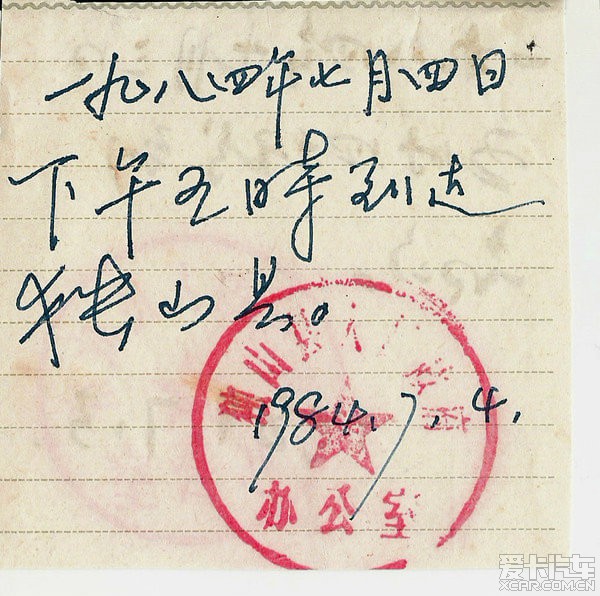 一九八四年七月四日
下午五時到达
独山县。
山县人 政府
1984.7.4.
办公室
爱卡汽车
XCAR.COM.CN